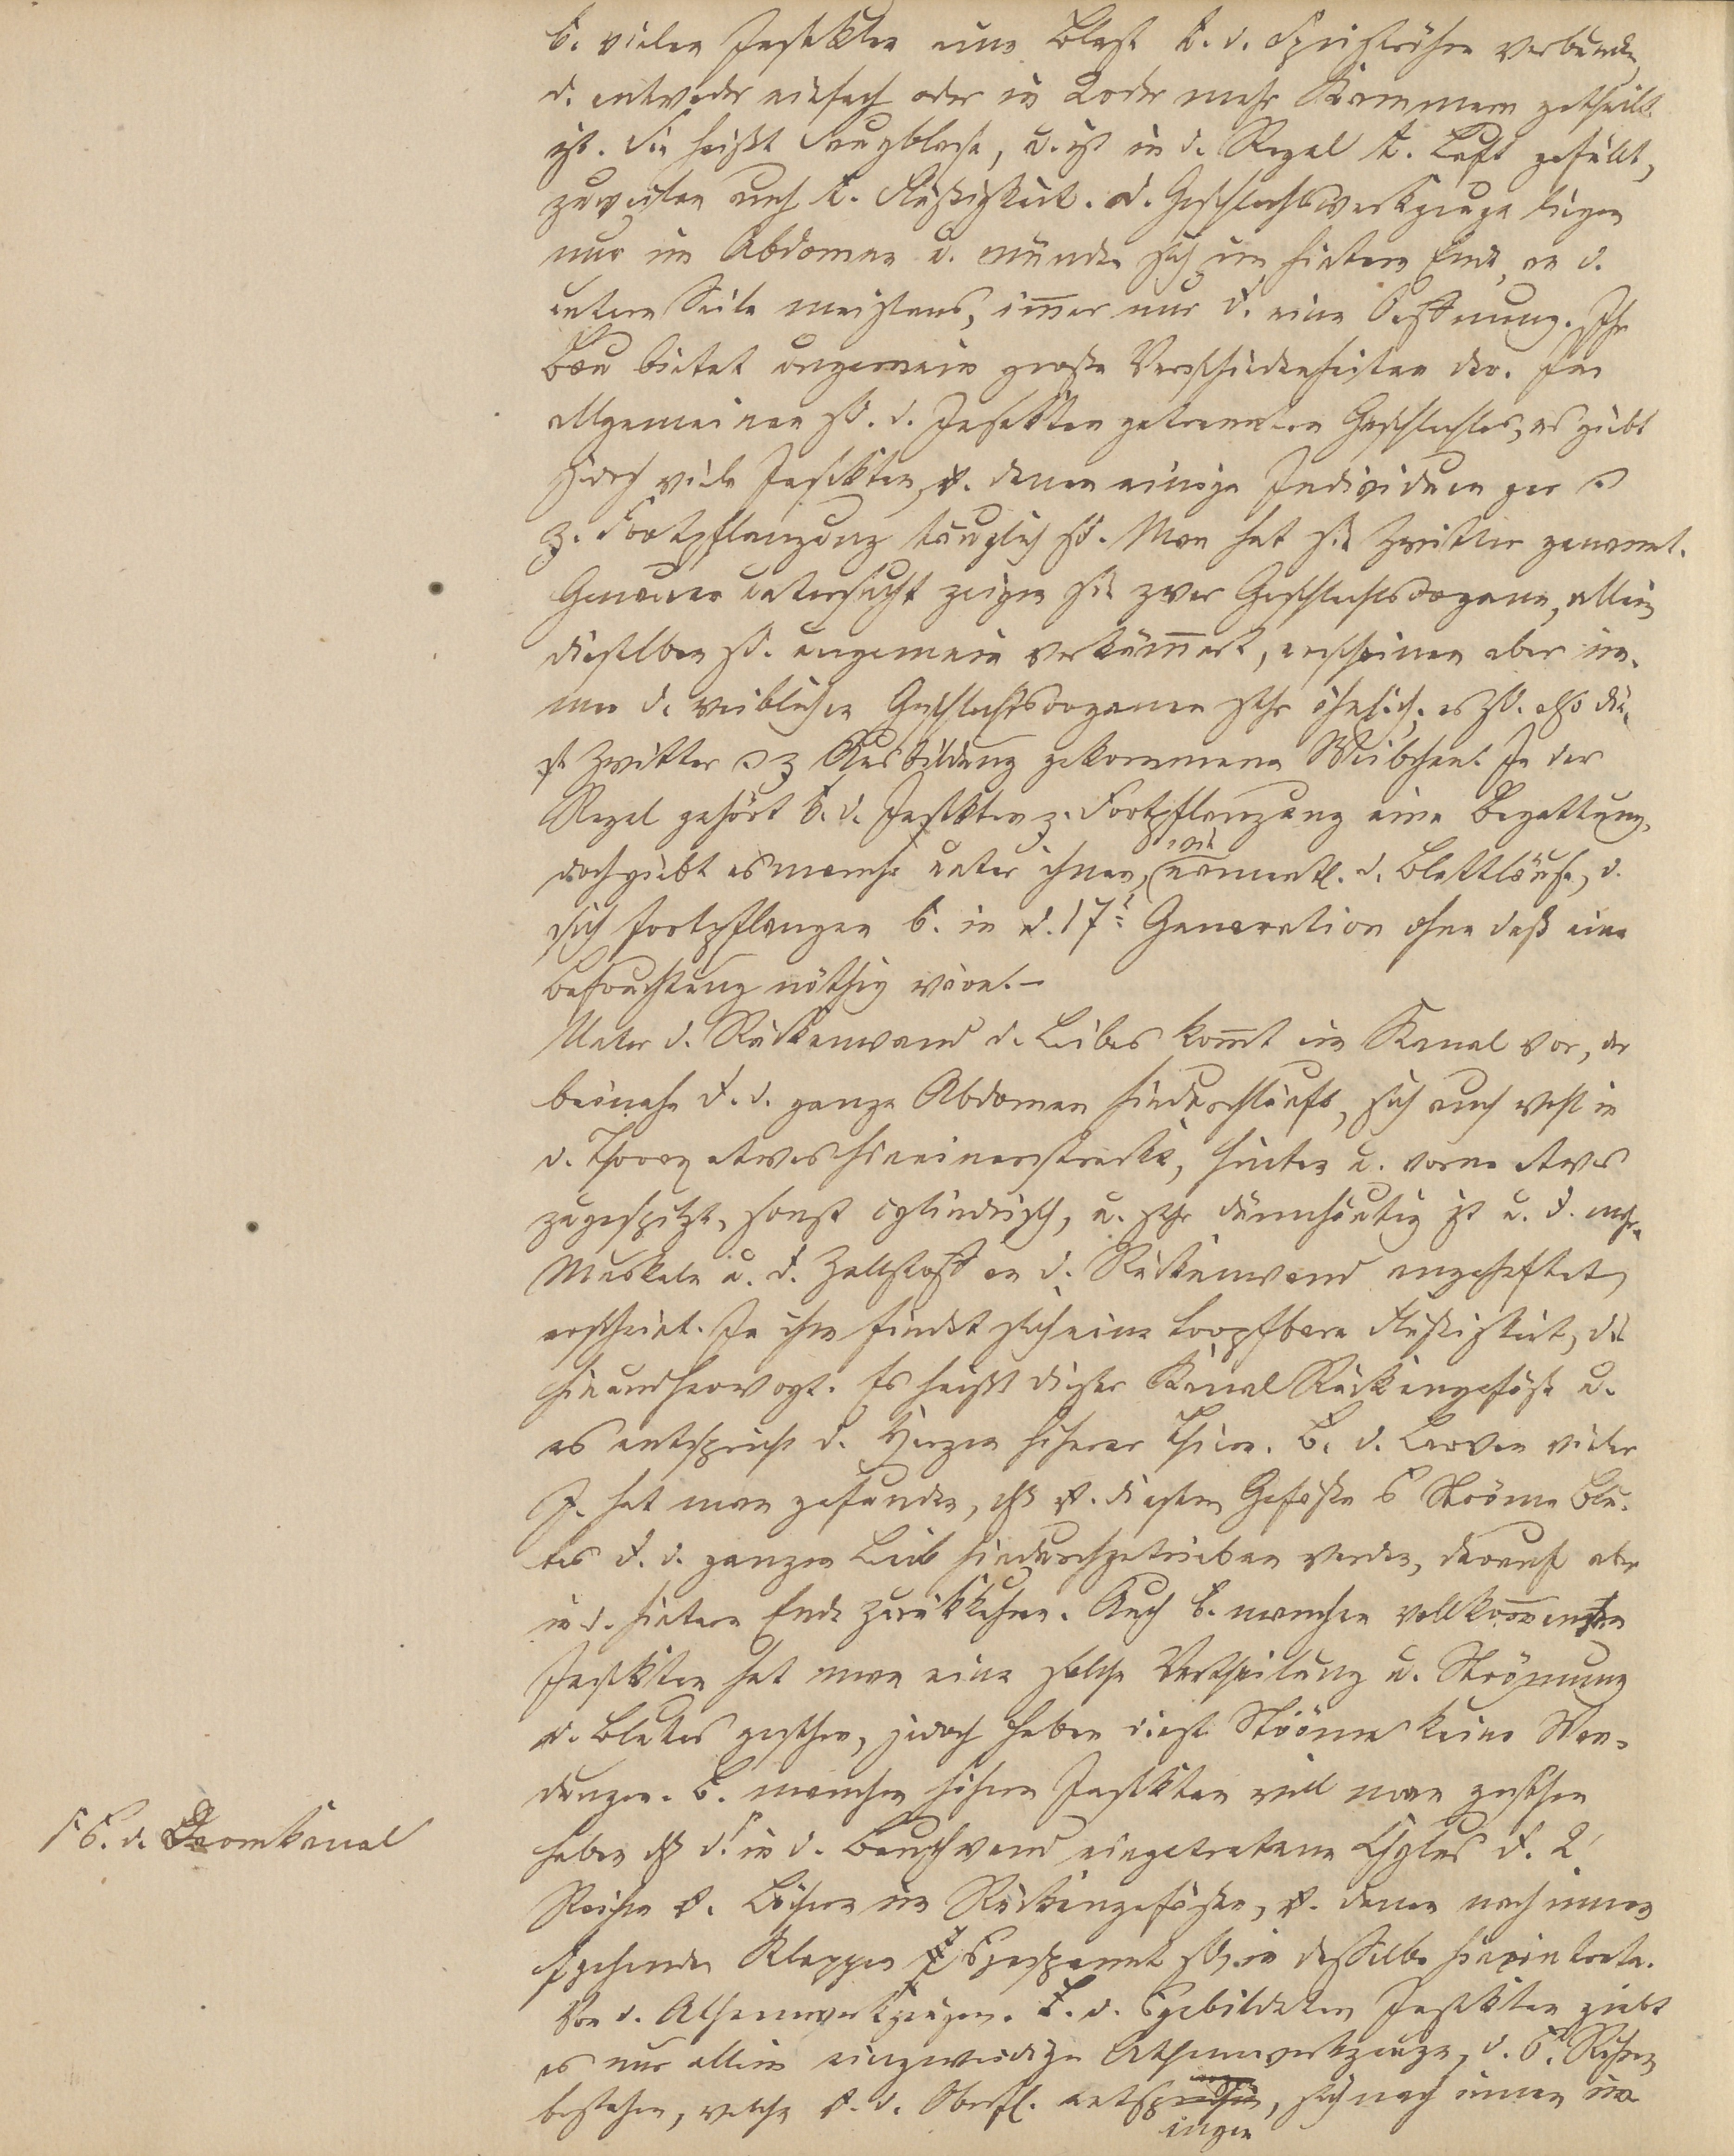 b. vielen Insekten eine Blase t. d. Speiseröhre verbunden,
d. entweder einfach oder in 2 oder mehr Kammern getheilt
ist. Sie heißt Saugblase, u. ist in d. Regel t. Luft gefüllt,
zuweilen auch t. Flüßigkeit. d. Geschlechtswerkzeuge liegen
nur im Abdomen u. münden sich im hintern Ende, an d.
untern Seite meistens, im̅er nur d. eine Oeffnung. Ihr
Bau bietet ungemein große Verschiedenheiten dar. Im
allgemeinen sd. d. Insekten getrennten Geschlechtes, es giebt
jedoch viele Insekten, v. denen einige Individuen gar
z. Fortpflanzung tauglich sd. Man hat sie Zwitter genannt.
Genauer untersucht zeigen sie zwar Geschlechtsorgane, allein
dieselben sd. ungemein verküm̅ert, erscheinen aber im-
mer d. weiblichen Geschlechtsorganen sehr ähnlich; es sd. also die-
se Zwitter z Ausbildung gekommene Weibchen. In der
Regel gehört b. d. Insekten z. Fortpflanzung eine Begattung,
doch giebt es manche unter ihnen, wie namentl. d. Blattläuse, d.
sich fortpflanzen b. in d. 17t Generation ohne daß eine
Befruchtung nöthig wäre. –
Unter d. Rückenwand d. Leibes kom̅t ein Kanal vor, der
beinahe d. d. ganze Abdomen hindurchläuft, sich auch wohl in
d. Thorax etwas hineinerstreckt, hinten u. vorne etwas
zugespitzt, sonst cylindrisch, u. sehr dünnhäutig ist u. d. mehr.
Muskeln u. d. Zellstoff an d. Rückenwand angeheftet
erscheint. In ihm findet sich eine tropfbare Flüßigkeit, die
hinundherwogt. Es heißt dieser Kanal Rückengefäße u.
es entspricht d. Herzen höherer Thiere. B. d. Larven vieler
I. hat man gefunden, dß v. diesem Gefäße Ströme Blu-
tes d. d. ganzen Leib hindurchgetrieben werden, darauf aber
in d. hintere Ende zurückkehren. Auch b. manchen vollkom̅ensten
Insekten hat man eine solche Vertheilung u. Strömung
d. Blutes gesehen, jedoch haben diese Ströme keine Wan-
dungen. B. manchen höhern Insekten will man gesehen
haben dß d. in d. Bauchwand eingetretene Chylus d. 2
Reihen v. Löchern im Rückengefäße, v. denen nach innen
gehende Klappen gespannt sd, in desselbe hineintrete.
Von d. Athemwerkzeugen. B. d. gebildeten Insekten giebt
es nur allein eingeweidige Athemwerkzeuge, d. Röhren
bestehen, welche v. d. Oberfl. entspringen, sich nach innen im
b. d. Darmkanal